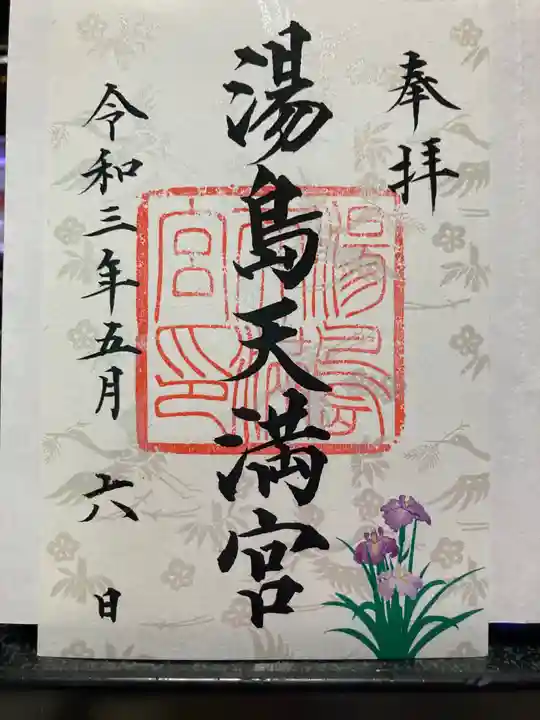 奉拝
湯島天満宮
令和三年五月六日
湯島天満宮印